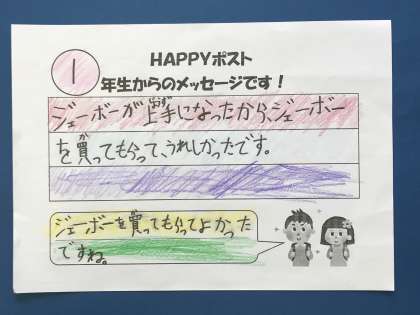 HAPPYポスト
1
年生からのメッセージです!
ジェーボーが上手になったから、ジェーボー
を買ってもらって、うれしかったです。
ジェーボーを買ってもらってよかった
ですね。